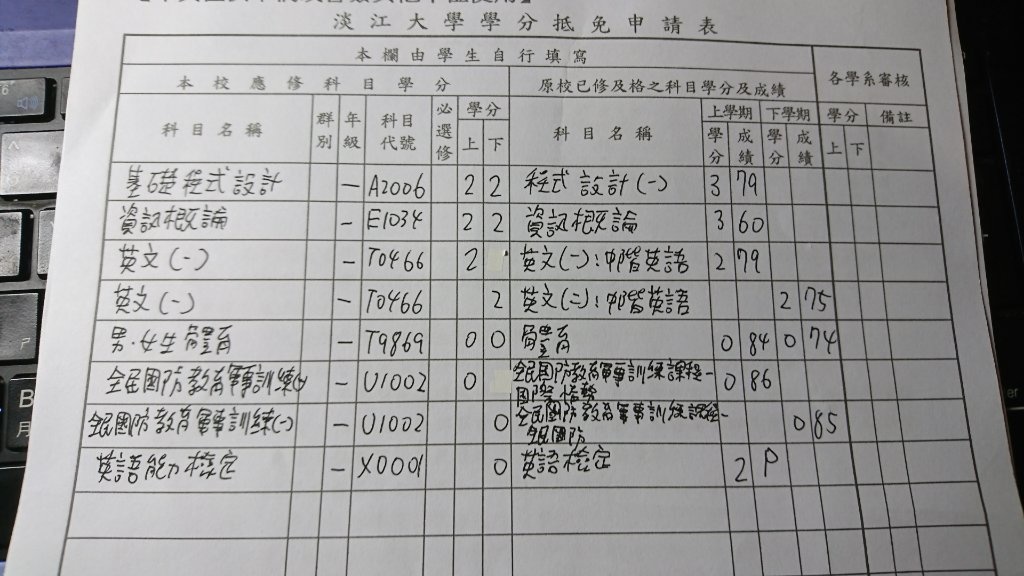 淡江大學學分抵免申請表
本欄由學生自行填寫
各學系審核
本校應修科目學分
原校已修及格之科目學分及成績
科目名稱 群別 年級 科目代號 必選修 學分 上 下 科目名稱 上學期 學分 成績 下學期 學分 成績 學分 上 下 備註
基礎程式設計 一 A2006 2 2 程式設計(一) 3 79
資訊概論 一 E1034 2 2 資訊概論 3 60
英文(一) 一 T0466 2 英文(一):中階英語 2 79
英文(一) 一 T0466 2 英文(二):中階英語 2 75
男.女生體育 一 T9869 0 0 體育 0 84 0 74
全民國防教育軍事訓練(一) 一 U1002 0 全民國防教育軍事訓練課程-
國際情勢 0 86
全民國防教育軍事訓練(一) 一 U1002 0 全民國防教育軍事訓練課程-
全民國防 0 85
英語能力檢定 一 X0001 0 英語檢定 2 P
B
月